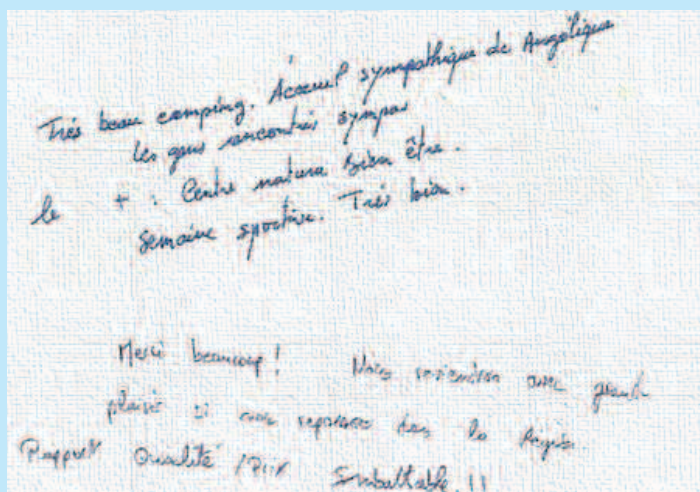 Très beau camping. Accueil sympathique de Angélique
les gens rencontrés sympas
le + : Centre natura Bien être.
Semaine sportive. Très bien.
Merci beaucoup ! Nous reviendrons avec grand
plaisir si nous repassons dans la Région.
Rapport Qualité / Prix Imbattable !!